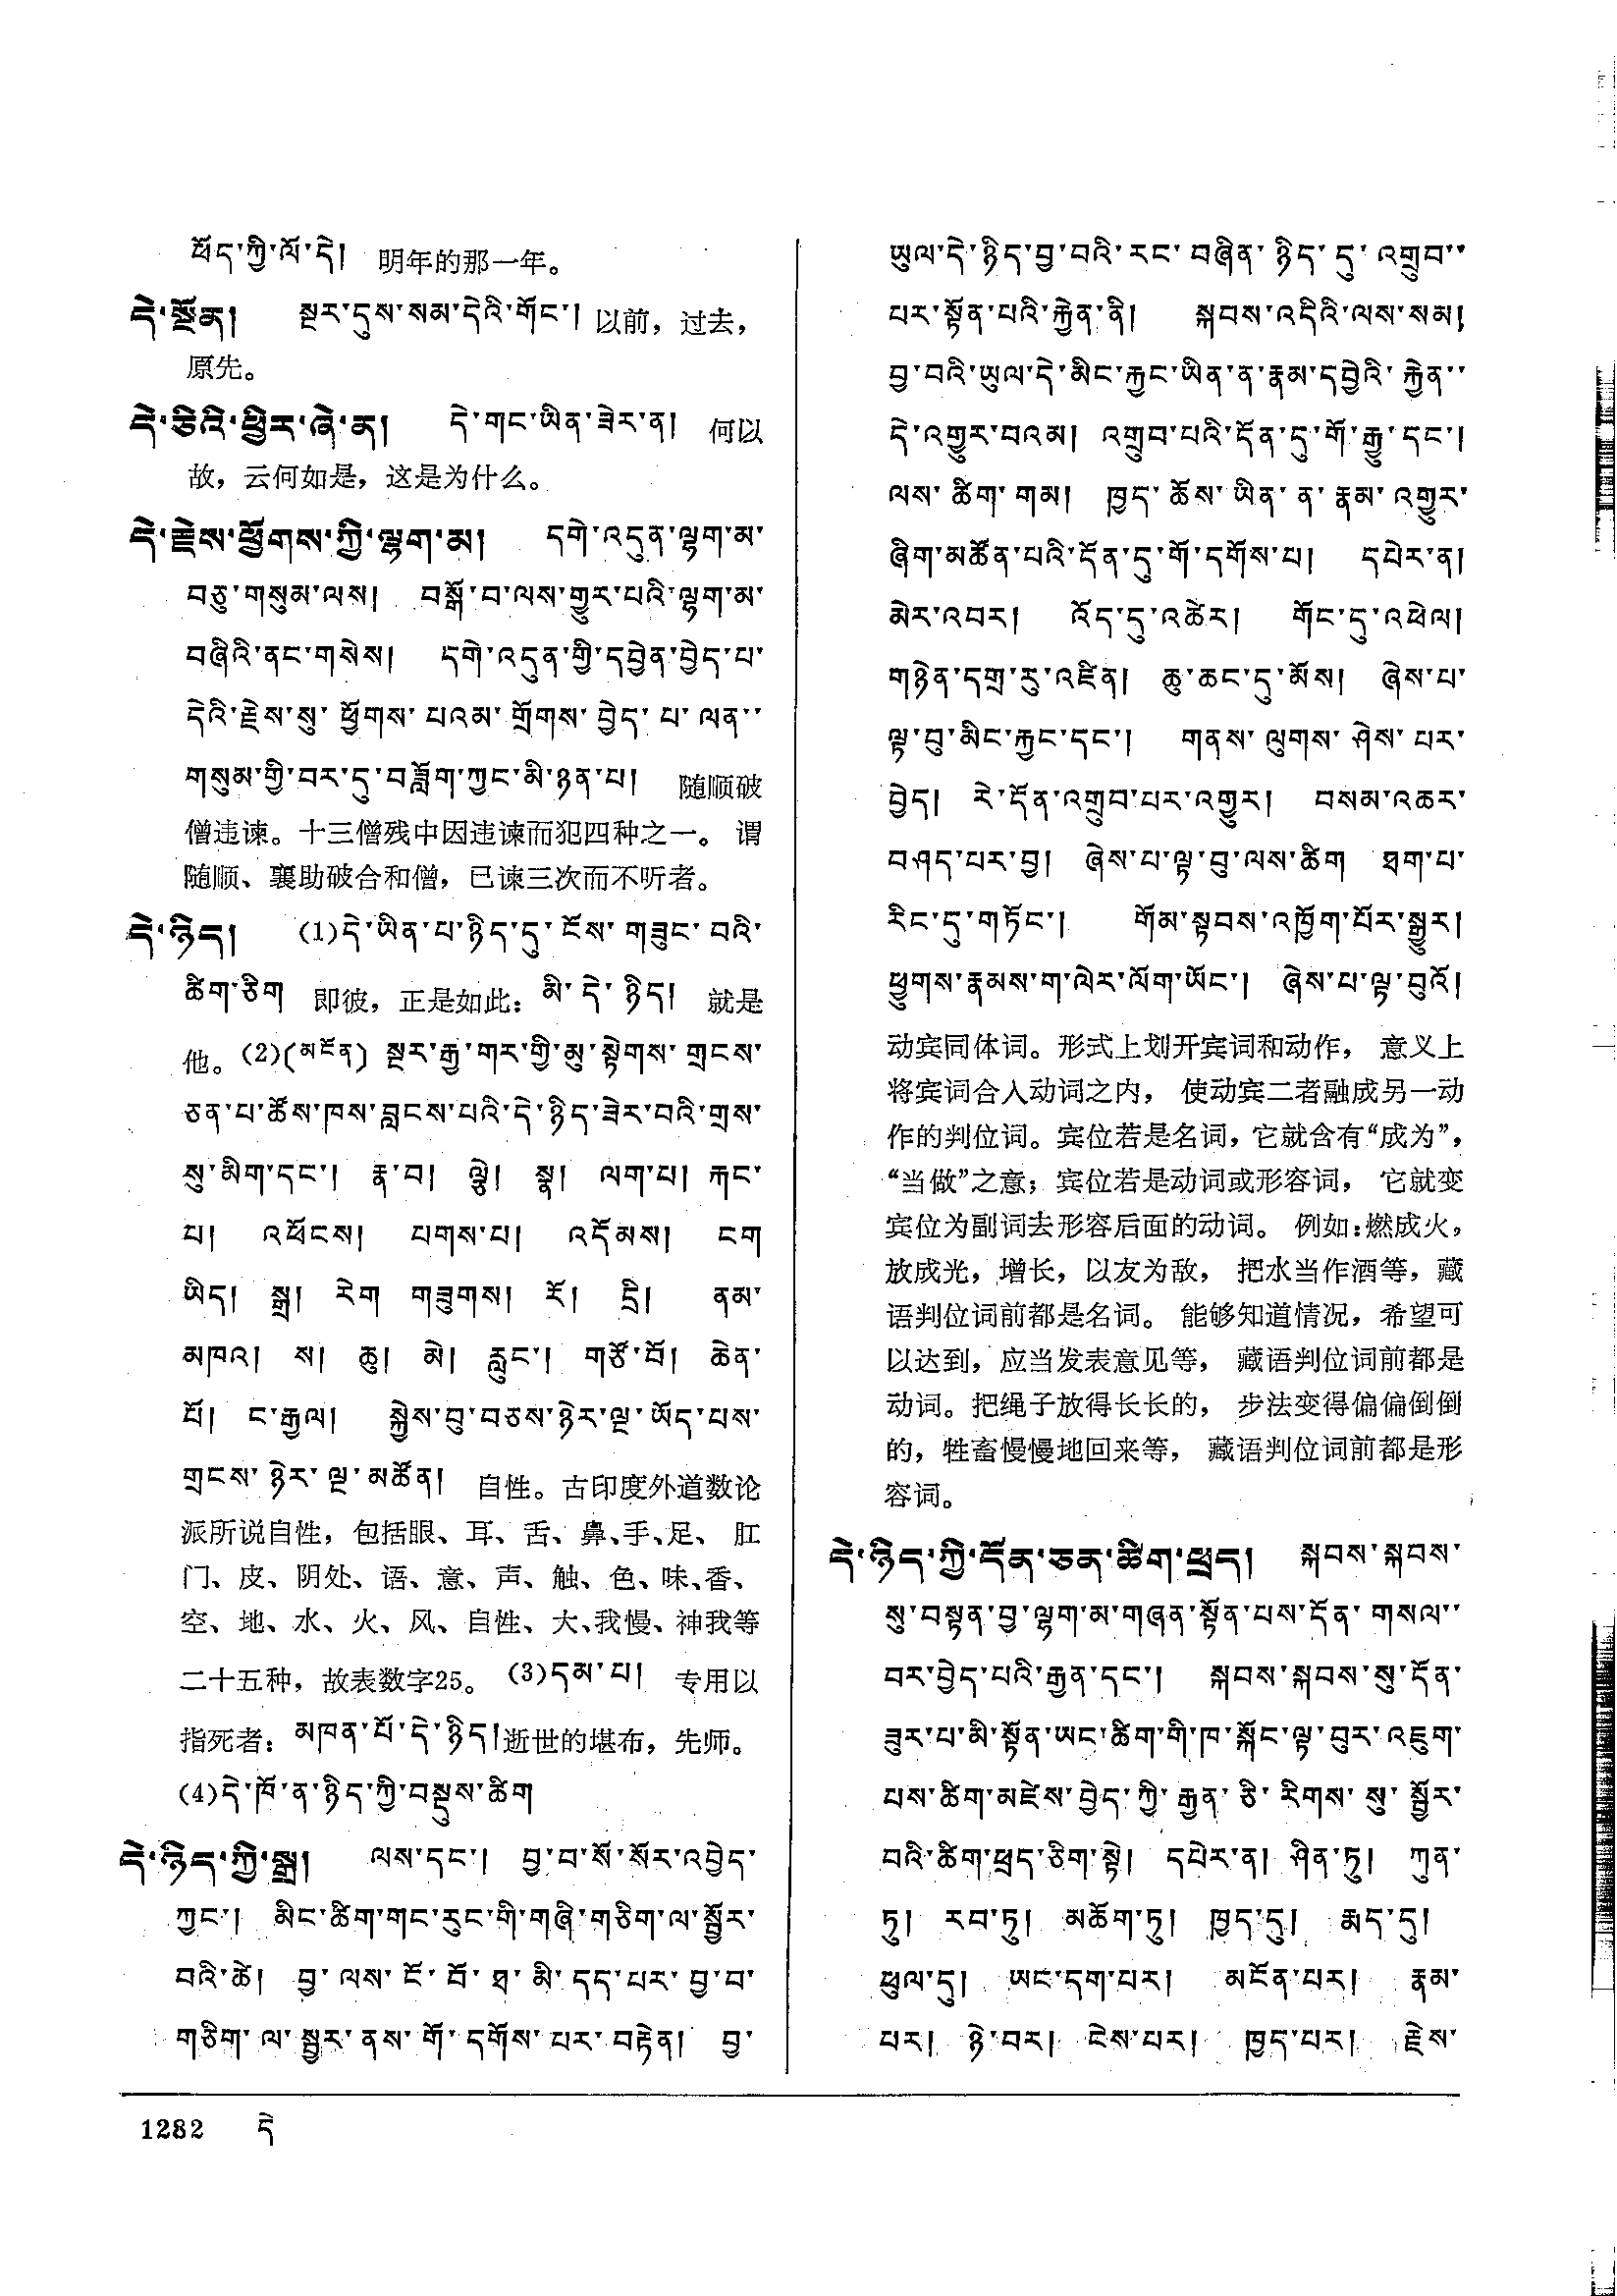 ཕོད་ཀྱི་ལོ་དེ། 明年的那一年。
དེ་སྔོན། སྔར་དུས་སམ་དེའི་གོང་། 以前，过去，
原先。
དེ་ཅིའི་ཕྱིར་ཞེ་ན། དེ་གང་ཡིན་ཟེར་ན། 何以
故，云何如是，这是为什么。
དེ་རྗེས་ཕྱོགས་ཀྱི་ལྷག་མ། དགེ་འདུན་ལྷག་མ་
བཅུ་གསུམ་ལས། བསྒོ་བ་ལས་གྱུར་པའི་ལྷག་མ་
བཞིའི་ནང་གསེས། དགེ་འདུན་གྱི་དབྱེན་བྱེད་པ་
དེའི་རྗེས་སུ་ཕྱོགས་པའམ་གྲོགས་བྱེད་པ་ལན་་
གསུམ་གྱི་བར་དུ་བཟློག་ཀྱང་མི་ཉན་པ། 随顺破
僧违谏。十三僧残中因违谏而犯四种之一。 谓
随顺、襄助破合和僧，已谏三次而不听者。
དེ་ཉིད། (1)དེ་ཡིན་པ་ཉིད་དུ་ངོས་གཟུང་བའི་
ཚིག་ཅིག 即彼，正是如此：མི་དེ་ཉིད། 就是
他。(2)(མངོན) སྔར་རྒྱ་གར་གྱི་མུ་སྟེགས་གྲངས་
ཅན་པ་ཚོས་ཁས་བླངས་པའི་དེ་ཉིད་ཟེར་བའི་གྲས་
སུ་མིག་དང་། རྣ་བ། ལྕེ། སྣ། ལག་པ། རྐང་
པ། འཕོངས། པགས་པ། འདོམས། ངག
ཡིད། སྒྲ། རེག གཟུགས། རོ། དྲི། ནམ་
མཁའ། ས། ཆུ། མེ། རླུང་། གཙོ་བོ། ཆེན་
པོ། ང་རྒྱལ། སྐྱེས་བུ་བཅས་ཉེར་ལྔ་ཡོད་པས་
གྲངས་ཉེར་ལྔ་མཚོན། 自性。古印度外道数论
派所说自性，包括眼、耳、舌、鼻、手、足、 肛
门、皮、阴处、语、意、声、触、色、味、香、
空、地、水、火、风、自性、大、我慢、神我等
二十五种，故表数字25。 (3)དམ་པ། 专用以
指死者：མཁན་པོ་དེ་ཉིད།逝世的堪布，先师。
(4)དེ་ཁོ་ན་ཉིད་ཀྱི་བསྡུས་ཚིག
དེ་ཉིད་ཀྱི་སྒྲ། ལས་དང་། བྱ་བ་སོ་སོར་འབྱེད་
ཀྱང་། མིང་ཚིག་གང་རུང་གི་གཞི་གཅིག་ལ་སྦྱོར་
བའི་ཚེ། བྱ་ལས་ངོ་བོ་ཐ་མི་དད་པར་བྱ་བ་
གཅིག་ལ་སྦྱར་ནས་གོ་དགོས་པར་བརྟེན། བྱ་
ཡུལ་དེ་ཉིད་བྱ་བའི་རང་བཞིན་ཉིད་དུ་འགྲུབ་་
པར་སྟོན་པའི་རྐྱེན་ནི། སྐབས་འདིའི་ལས་སམ།
བྱ་བའི་ཡུལ་དེ་མིང་རྐྱང་ཡིན་ན་རྣམ་དབྱེའི་རྐྱེན་་
དེ་འགྱུར་བའམ། འགྲུབ་པའི་དོན་དུ་གོ་རྒྱུ་དང་།
ལས་ཚིག་གམ། ཁྱད་ཆོས་ཡིན་ན་རྣམ་འགྱུར་
ཞིག་མཚོན་པའི་དོན་དུ་གོ་དགོས་པ། དཔེར་ན།
མེར་འབར། འོད་དུ་འཚེར། གོང་དུ་འཕེལ།
གཉེན་དགྲ་རུ་འཛིན། ཆུ་ཆང་དུ་མོས། ཞེས་པ་
ལྟ་བུ་མིང་རྐྱང་དང་། གནས་ལུགས་ཤེས་པར་
བྱེད། རེ་དོན་འགྲུབ་པར་འགྱུར། བསམ་འཆར་
བཤད་པར་བྱ། ཞེས་པ་ལྟ་བུ་ལས་ཚིག ཐག་པ་
རིང་དུ་གཏོང་། གོམ་སྟབས་འཁྱོག་པོར་སྒྱུར།
ཕྱུགས་རྣམས་ག་ལེར་ལོག་ཡོང་། ཞེས་པ་ལྟ་བུའོ།
动宾同体词。形式上划开宾词和动作， 意义上
将宾词合入动词之内， 使动宾二者融成另一动
作的判位词。宾位若是名词，它就含有“成为”，
“当做”之意；宾位若是动词或形容词， 它就变
宾位为副词去形容后面的动词。 例如：燃成火，
放成光，增长，以友为敌， 把水当作酒等，藏
语判位词前都是名词。 能够知道情况，希望可
以达到，应当发表意见等， 藏语判位词前都是
动词。把绳子放得长长的， 步法变得偏偏倒倒
的，牲畜慢慢地回来等， 藏语判位词前都是形
容词。
དེ་ཉིད་ཀྱི་དོན་ཅན་ཚིག་ཕྲད། སྐབས་སྐབས་
སུ་བསྟན་བྱ་ལྷག་མ་གཞན་སྟོན་པས་དོན་གསལ་་
བར་བྱེད་པའི་རྒྱན་དང་། སྐབས་སྐབས་སུ་དོན་
ཟུར་པ་མི་སྟོན་ཡང་ཚིག་གི་ཁ་སྐོང་ལྟ་བུར་འཇུག་
པས་ཚིག་མཛེས་བྱེད་ཀྱི་རྒྱན་ཅི་རིགས་སུ་སྦྱོར་
བའི་ཚིག་ཕྲད་ཅིག་སྟེ། དཔེར་ན། ཤིན་ཏུ། ཀུན་
ཏུ། རབ་ཏུ། མཆོག་ཏུ། ཁྱད་དུ། རྨད་དུ།
ཕུལ་དུ། ཡང་དག་པར། མངོན་པར། རྣམ་
པར། ཉེ་བར། ངེས་པར། ཁྱད་པར། རྗེས་
1282 དེ